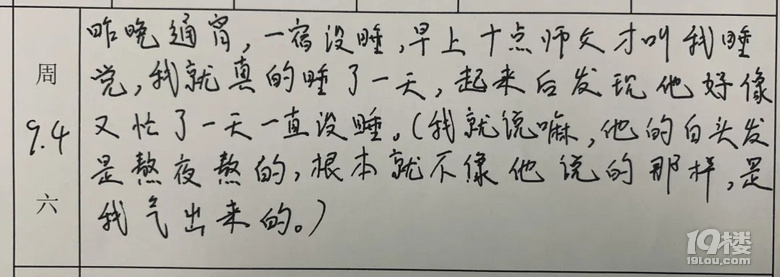 昨晚通宵，一宿没睡，早上十点师父才叫我睡
觉，我就真的睡了一天，起来后发现他好像
又忙了一天一直没睡。（我就说嘛，他的白头发
是熬夜熬的，根本就不像他说的那样，是
我气出来的。）
周
9.4
六
19楼
19lou.com